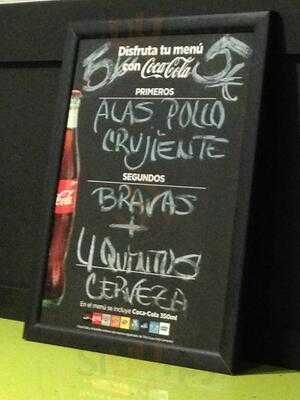 Disfruta tu menú
5 con Coca-Cola 5€
PRIMEROS
ALAS POLLO
CRUJIENTE
SEGUNDOS
BRAVAS
+
4 QUINTOS
CERVEZA
En el menú se incluye Coca-Cola 350ml